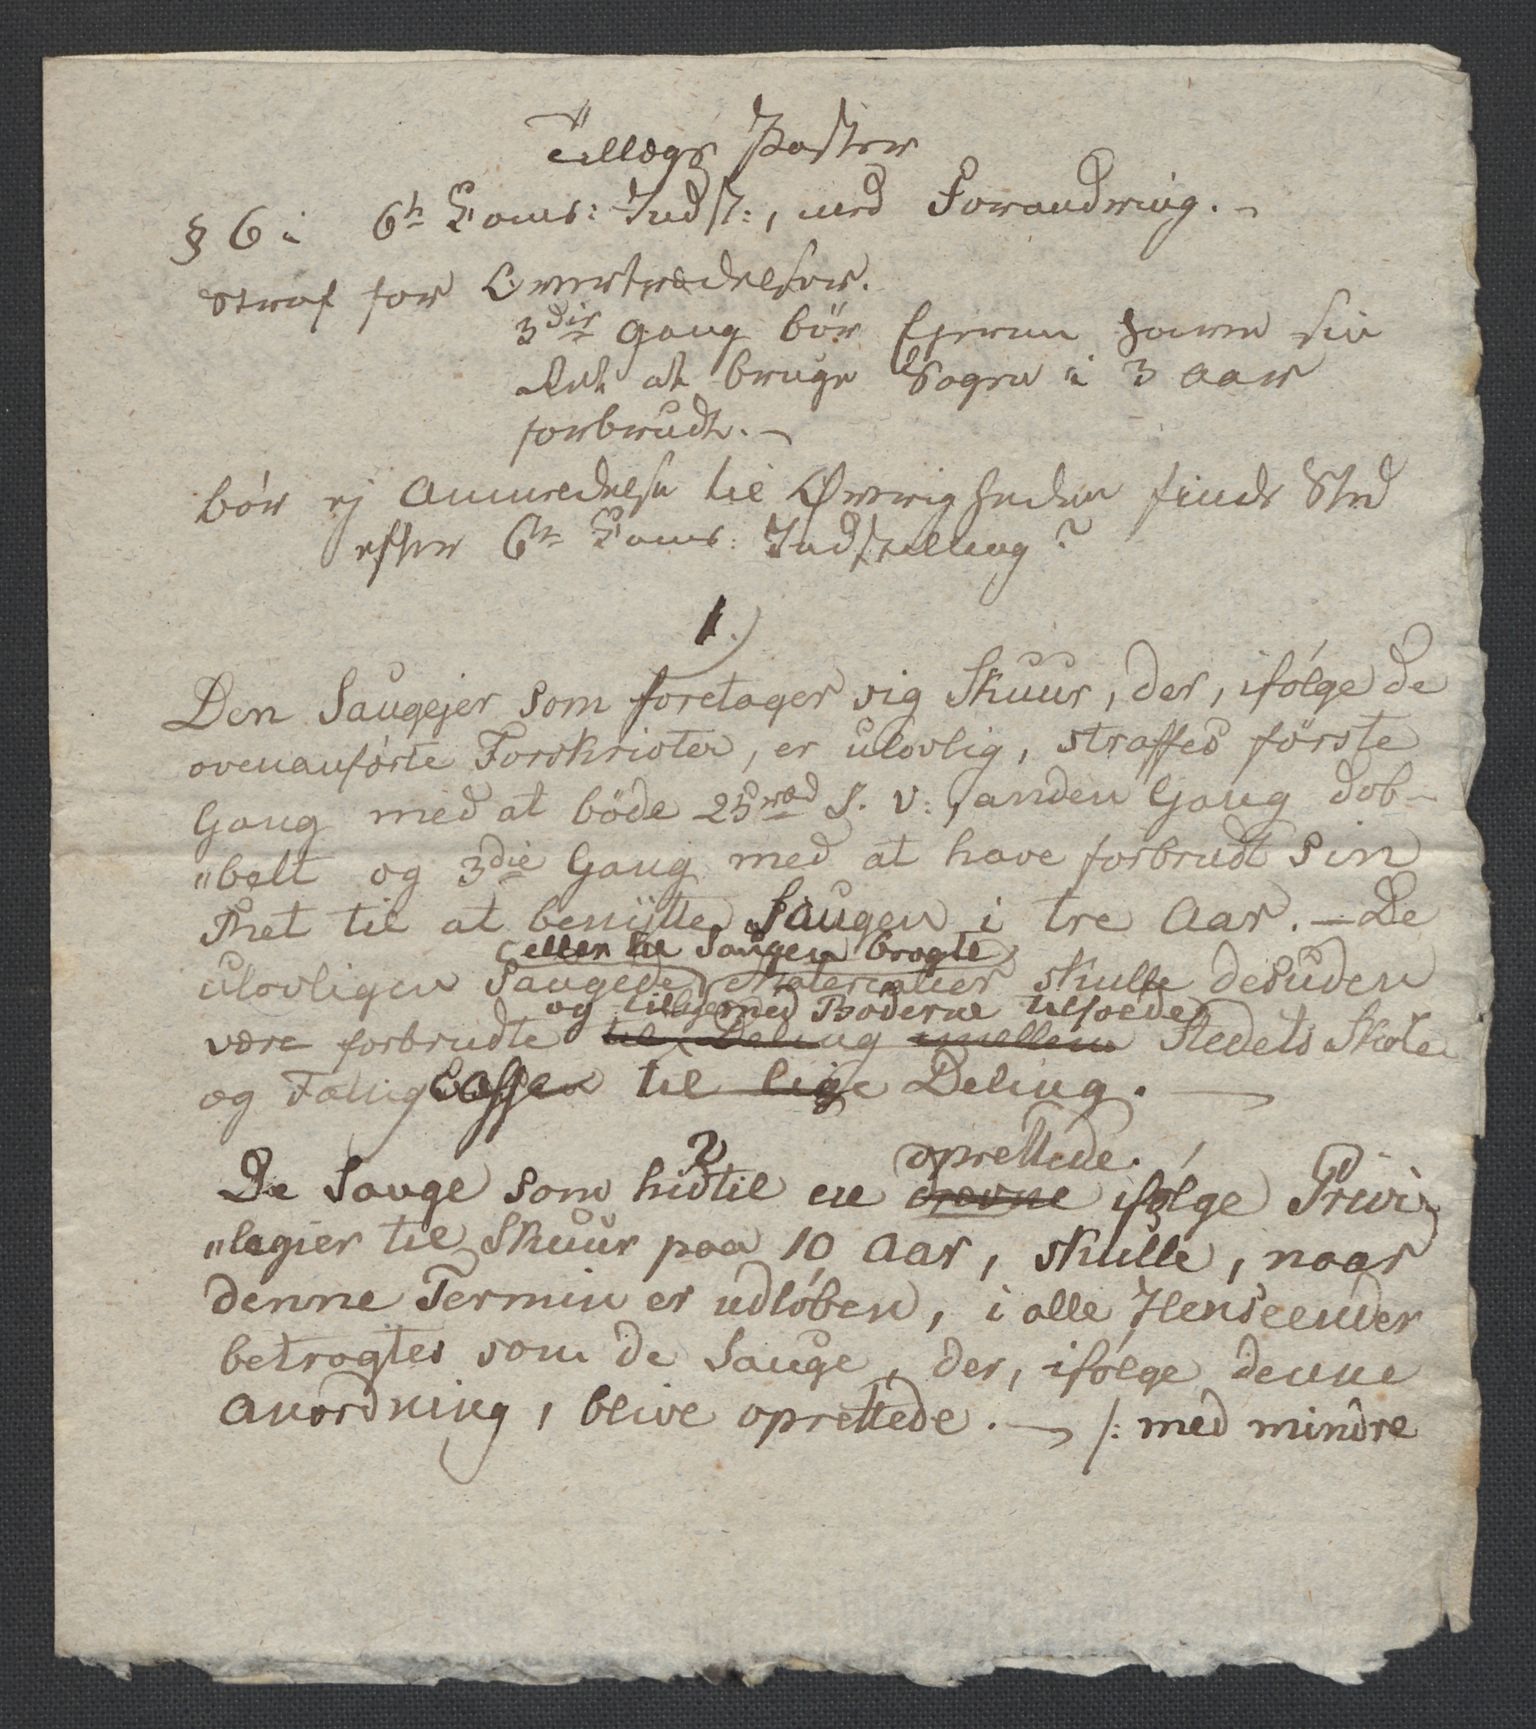 Tillægs Poster
§ 6 i 6te Coms: Indst:, med Forandring. -
Straf for Overtrædelser.
3die Gang bör Ejeren have sin
Ret at bruge Sagen i 3 Aar
forbrudt. -
bör ej Anmeldelse til Øvrigheden finde Sted
efter 6te Coms: Indstilling?
1.)
Den Saugejer som foretager sig Skuur, der, ifölge de
ovenanförte Forskrivter, er ulovlig, straffes förste
Gang med at böde 25 S. v:, anden Gang dob-
"belt og 3die Gang med at have forbrudt sin
Ret til at benütte Saugen i tre Aar. - De
eller til Saugen bragte
ulovligen Saugede Materialier skulle desuden
og tilligemed Böderne tilfalde
være forbrudte til Deling imellem Stedets Skole
og Fattig Cassen til lige Deling. -
2
oprettede.
De Sauge som hidtil ere drevne ifølge Privi-
"legier til Skuur paa 10 Aar, skulle, naar
denne Termin er udlöben, i alle Henseender
betragtes som de Sauge, der, ifølge denne
Anordning, blive oprettede. - /: med mindre